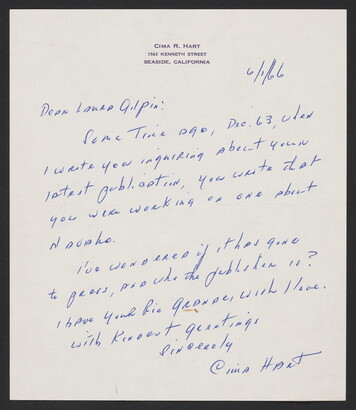 CIMA R. HART
1563 KENNETH STREET
SEASIDE, CALIFORNIA
6/1/66
Dear Laura Gilpin:
Some Time ago, Dec. 63, when
I wrote you inquiring about your
latest publication, you wrote that
you were working on one about
Navaho.
I've wondered if it has gone
to press, and who the publisher is?
I have your Rio Grande, wish I love.
with Kindest Greetings
Sincerely
Cima Hart